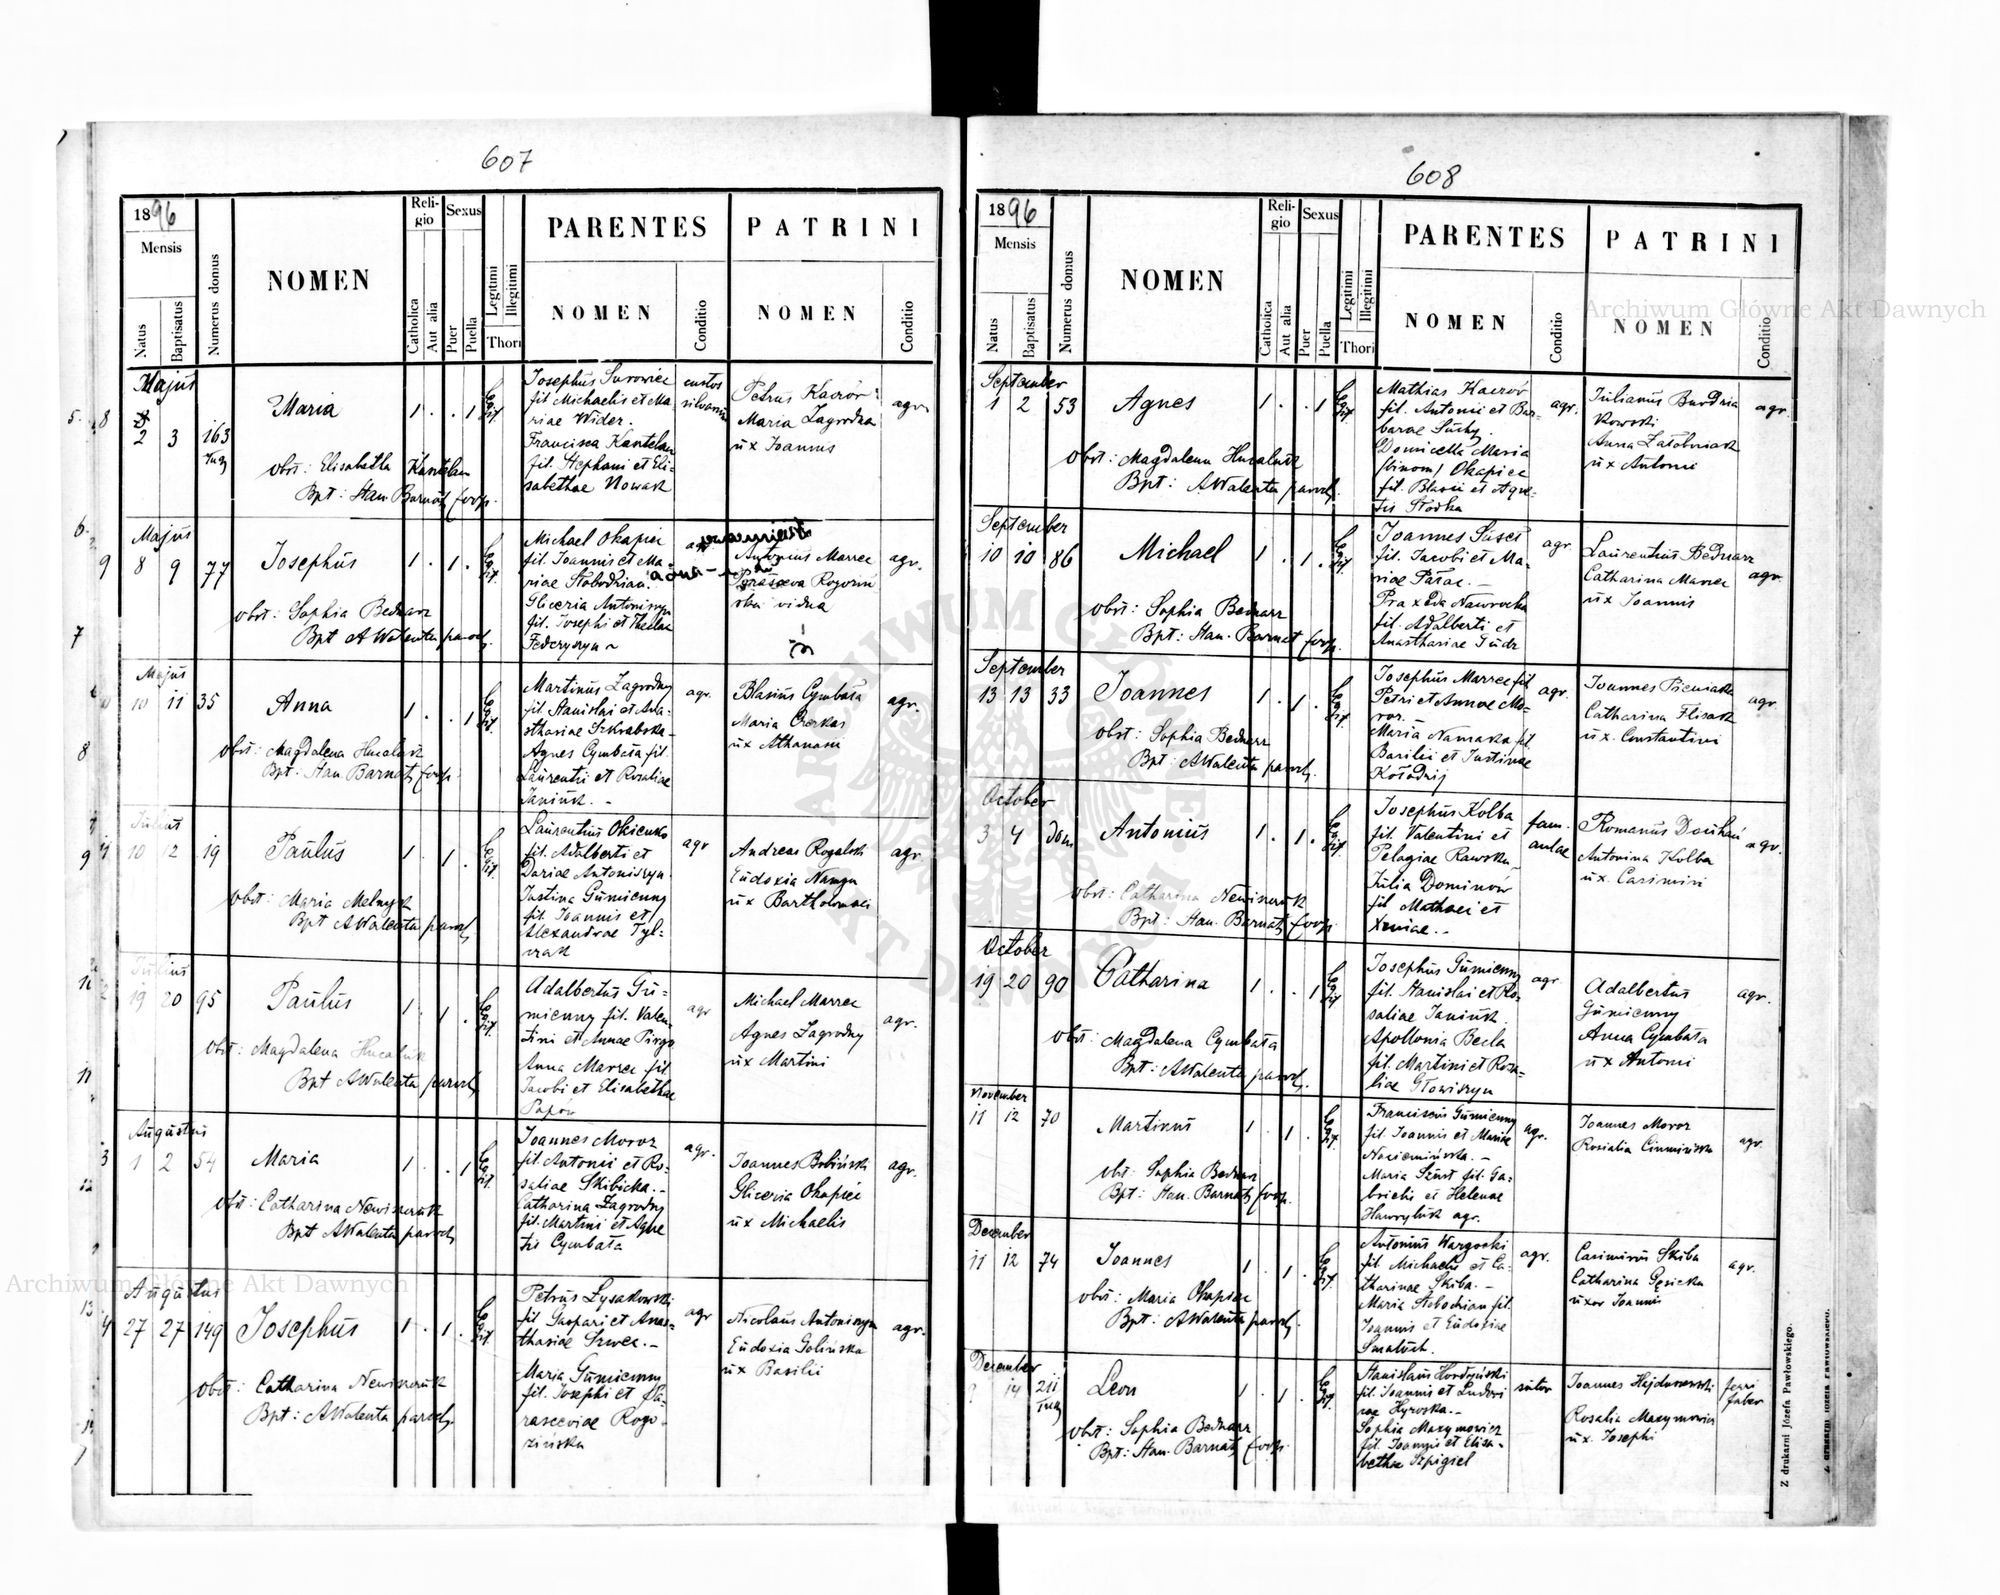 607
1896
Mensis
Natus
Baptisatus
Numerus domus
NOMEN
Reli-
gio
Catholica
Aut alia
Sexus
Puer
Puella
Legitimi
Illegitimi
Thori
PARENTES
NOMEN
Conditio
PATRINI
NOMEN
Conditio
Majus
2 3 163
Maria
1 . . 1
obst: Elisabetha Kantelan
Bpt: Stan. Barnat coop.
Josephus Surowiec
fil Michaelis et Ma-
riae Wider.
Francisca Kantelan
fil. Stephani et Eli-
sabethae Nowak
custos
silvarum
Petrus Kaczór
Maria Zagrodna
ux Joannis
agr.
Majus
8 9 77
Josephus
1 . 1 .
obst: Sophia Bednarz
Bpt A Walenta paroch.
Michael Okapiec
fil. Joannis et Ma-
riae Stobodzian.
Gliceria Antoniszyn
fil. Josephi et Theclae
Federyszyn
agr.
Antonius Marzec
vidua
agr.
Majus
10 11 35
Anna
1 . . 1
obst: Magdalena Hucaluk
Bpt: Stan. Barnat coop.
Martinus Zagrodny
fil. Stanislai et Ana-
sthasiae Szkrabska
Agnes Cymbała fil.
Laurentii et Rosaliae
Janiuk. -
agr.
Blasius Cymbała
Maria Czerkas
ux Athanasii
agr.
Julius
10 12 19
Paulus
1 . 1 .
obst: Maria Melnyk
Bpt A Walenta paroch.
Laurentius Okienko
fil. Adalberti et
Dariae Antoniszyn.
Justina Gumienny
fil. Joannis et
Alexandrae Tyl-
czak
agr
Andreas Rogalski
Eudoxia Namyn
ux Bartholomaei
agr.
Julius
19 20 95
Paulus
1 . 1 .
obst: Magdalena Hucaluk
Bpt A Walenta paroch.
Adalbertus Gu-
mienny fil. Valen-
tini et Annae Pirgo
Anna Marzec fil.
Jacobi et Elisabethae
Papów
agr
Michael Marzec
Agnes Zagrodny
ux Martini
agr.
Augustus
1 2 54
Maria
1 . . 1
obst: Catharina Newiszczuk
Bpt A Walenta paroch.
Joannes Moroz
fil Antonii et Ro-
saliae Skibicka. -
Catharina Zagrodny
fil. Martini et Agne
tis Cymbała
agr.
Joannes Bobiński
Gliceria Okapiec
ux Michaelis
agr.
Augustus
27 27 149
Josephus
1 . 1 .
obst: Catharina Newiszczuk
Bpt: A Walenta paroch.
Petrus Łysakowski
fil Gaspari et Anas-
thasiae Szwec. -
Maria Gumienny
fil. Josephi et Pa-
rasceviae Rogo-
zińska
agr
Nicolaus Antoniszyn
Eudoxia Golińska
ux Basilii
agr.
608
1896
Mensis
Natus
Baptisatus
Numerus domus
NOMEN
Reli-
gio
Catholica
Aut alia
Sexus
Puer
Puella
Legitimi
Illegitimi
Thori
PARENTES
NOMEN
Conditio
PATRINI
NOMEN
Conditio
September
1 2 53
Agnes
1 . . 1
obst: Magdalena Hucaluk
Bpt: A Walenta paroch.
Mathias Kaczór
fil. Antonii et Bar-
barae Suchy.
Domicella Maria
(binom) Okapiec
fil. Blasii et Agne-
tis Słodka
agr.
Julianus Burdzia
kowski
Anna Załobniak
ux Antonii
agr.
September
10 10 86
Michael
1 . 1 .
obst: Sophia Bednarz
Bpt: Stan. Barnat coop.
Joannes Suseł
fil. Jacobi et Ma-
riae Pałac. -
Praxeda Nawrocka
fil. Adalberti et
Anasthasiae Gudz
agr.
Laurentius Bednarz
Catharina Marzec
ux Joannis
agr.
September
13 13 33
Joannes
1 . 1 .
obst: Sophia Bednarz
Bpt: A Walenta paroch.
Josephus Marzec fil
Petri et Annae Mo-
roz.
Maria Namaka fil.
Basilii et Justinae
Kołodnij
agr.
Joannes Pieniak
Catharina Flisak
ux. Constantini
agr.
October
3 4 dom
Antonius
1 . 1 .
obst: Catharina Newiszczuk
Bpt: Stan. Barnat coop.
Josephus Kolba
fil. Valentini et
Pelagiae Rawska
Julia Dominów
fil Mathaei et
Xeniae. -
fam.
aulae
Romanus Douhań
Antonina Kolba
ux. Casimiri
agr.
October
19 20 90
Catharina
1 . . 1
obst: Magdalena Cymbała
Bpt: A Walenta paroch.
Josephus Gumienny
fil. Stanislai et Ro-
saliae Janiuk.
Apollonia Becla
fil. Martini et Rosa-
liae Głowiszyn
agr
Adalbertus
Gumienny
Anna Cymbała
ux Antonii
agr.
November
11 12 70
Martinus
1 . 1 .
obst: Sophia Bednarz
Bpt: Stan. Barnat coop.
Franciscus Gumienny
fil. Joannis et Mariae
Maria Szust fil. Ga-
brielis et Helenae
Hawryluk agr.
agr.
Joannes Moroz
Rosalia
agr.
December
11 12 74
Joannes
1 . 1 .
obst: Maria Okapiec
Bpt: A Walenta paroch.
Antonius Wargocki
fil. Michaelis et Ca-
tharinae Skiba. -
Maria Słobodzian fil.
Joannis et Eudoxiae
Smaluch.
agr.
Casimirus Skiba
Catharina Gęsicka
uxor Joannis
agr.
December
9 14 211
Leon
1 . 1 .
obst: Sophia Bednarz
Bpt: Stan. Barnat coop.
Stanislaus Hordyński
fil. Joannis et Ludovi
cae Hyrowska. -
Sophia Maxymowicz
fil. Joannis et Elisa-
bethae Szpigiel
sutor
Joannes Hajdunowski
Rosalia Maxymowicz
ux. Josephi
ferri
faber
Z drukarni Józefa Pawłowskiego.
Archiwum Główne Akt Dawnych
Archiwum Główne Akt Dawnych
ARCHIWUM GŁÓWNE AKT DAWNYCH